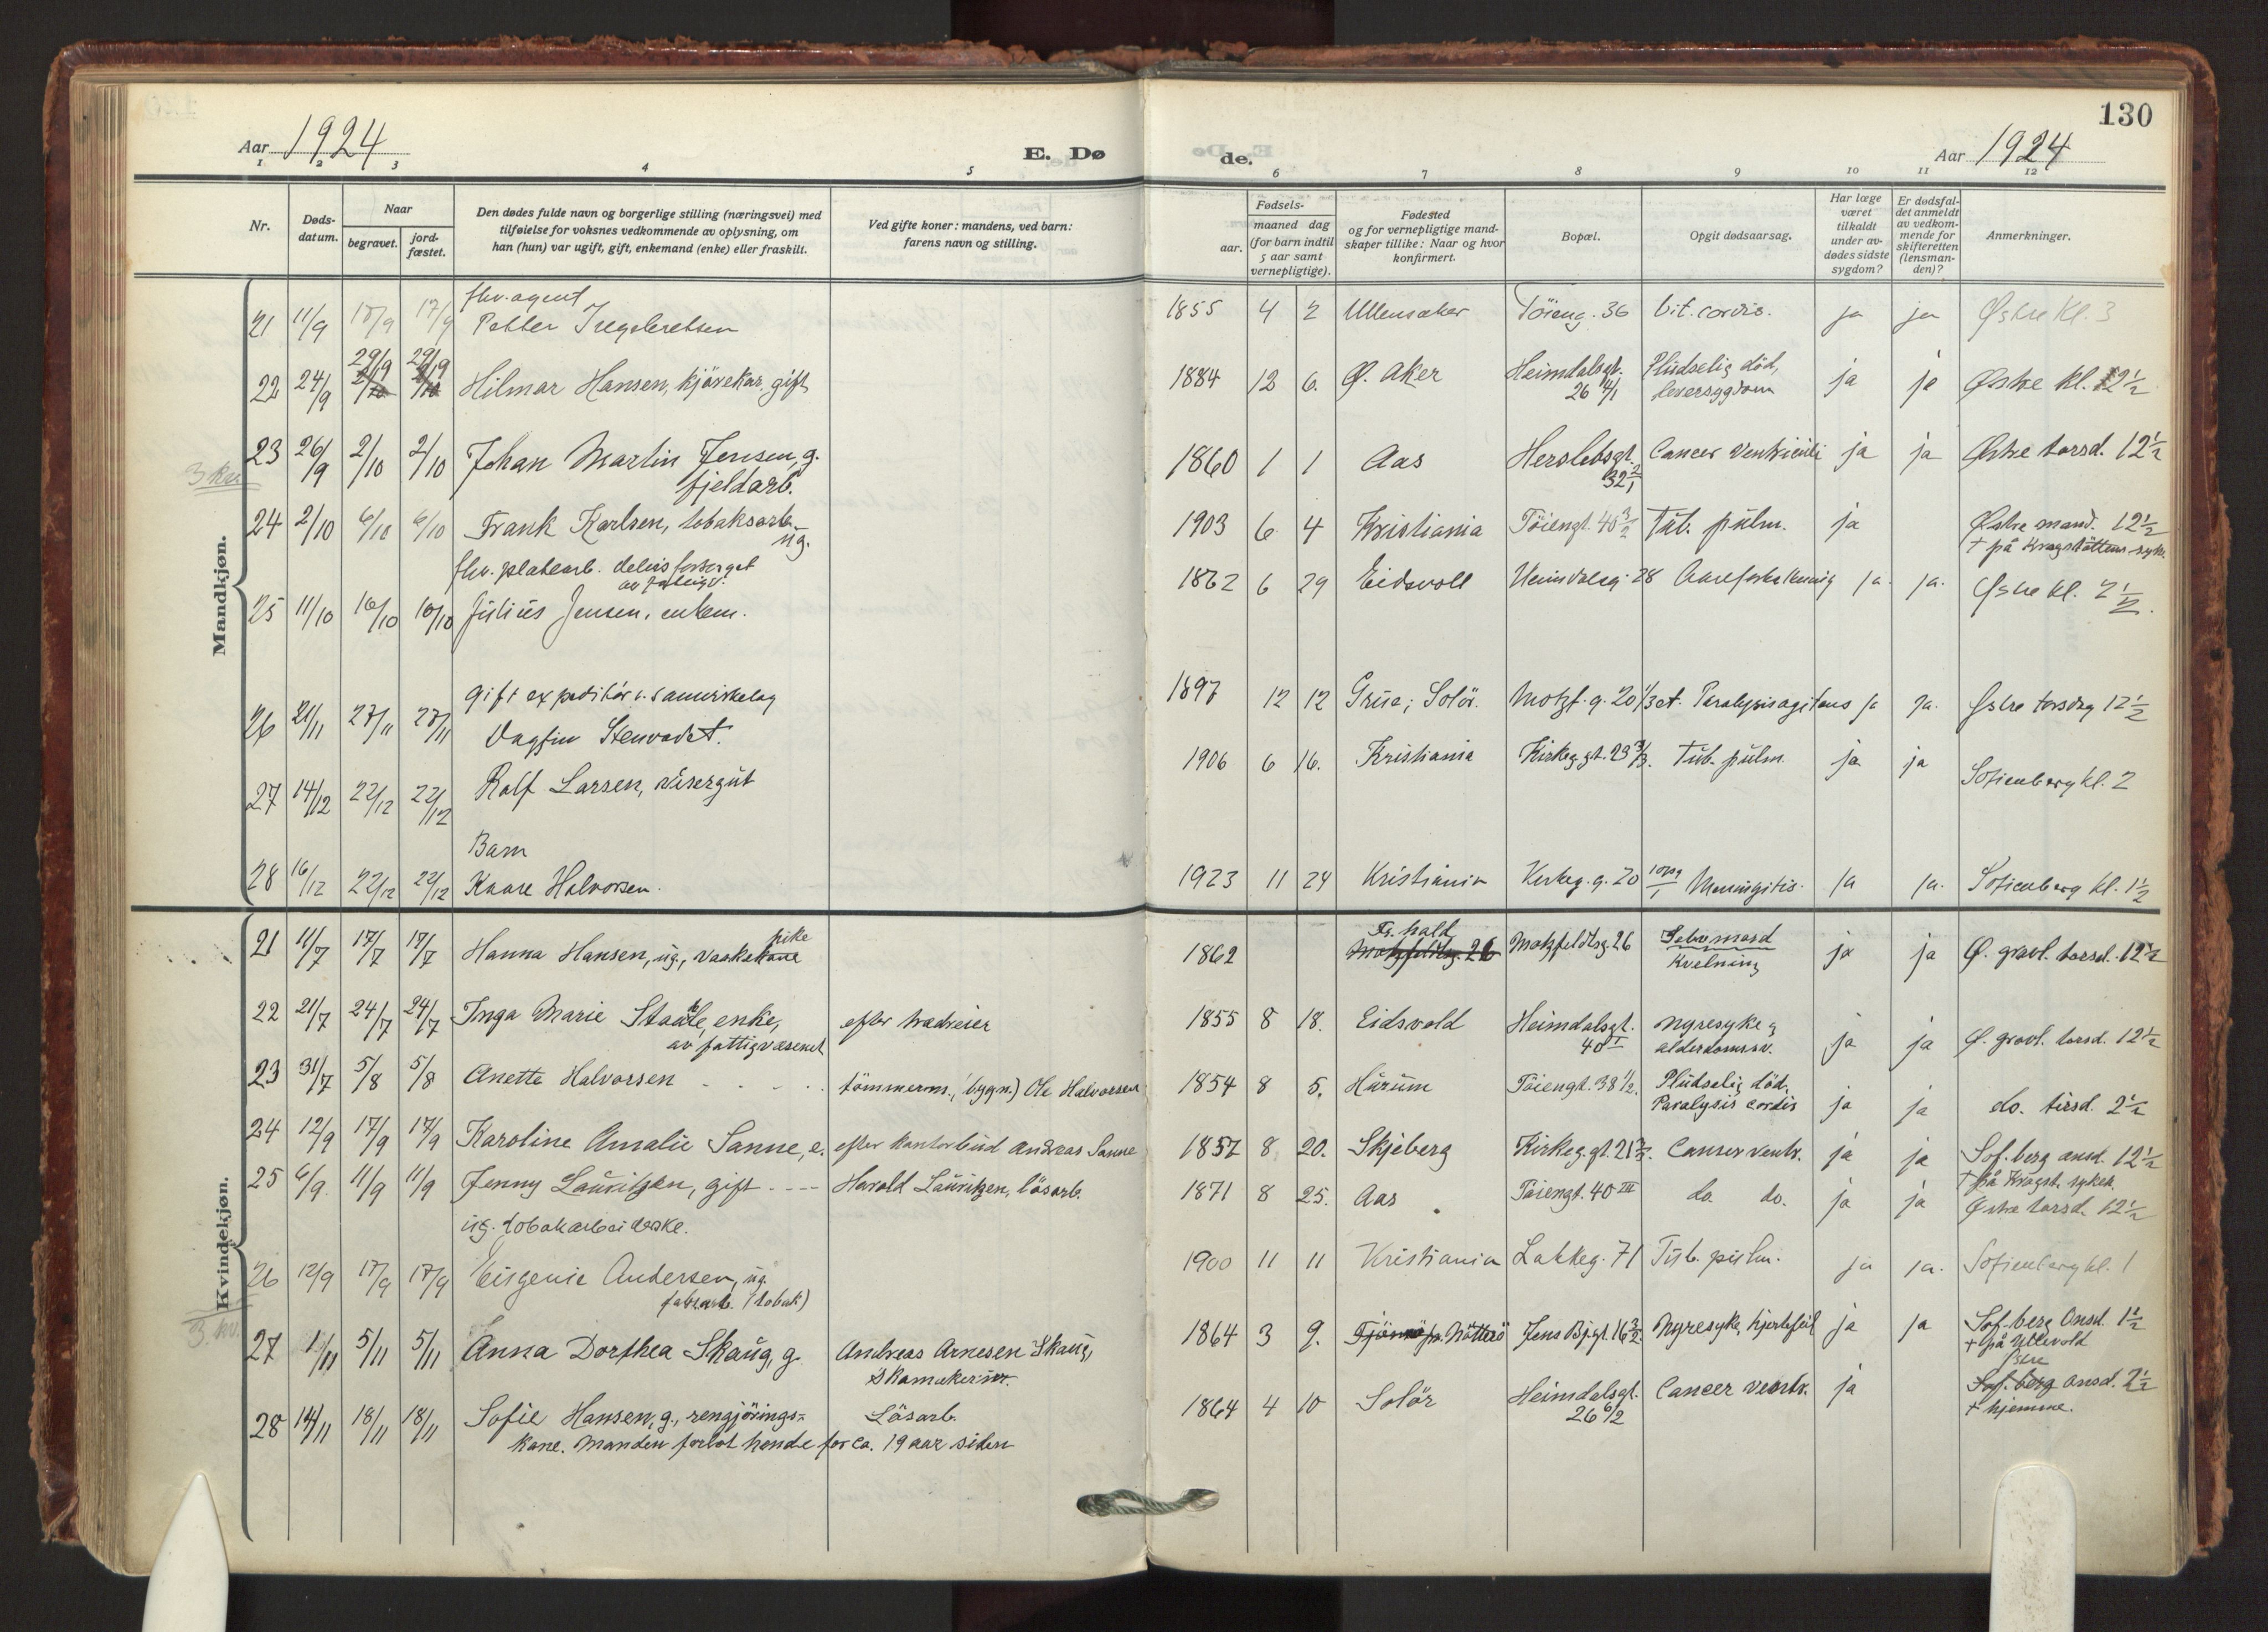 130
Aar 1924
E. Dø
de.
Aar 1924
1 2 3 4 5 6 7 8 9 10 11 12
Nr.
Døds-
datum.
Naar
begravet.
jord-
fæstet.
Den dødes fulde navn og borgerlige stilling (næringsvei) med
tilføielse for voksnes vedkommende av oplysning, om
han (hun) var ugift, gift, enkemand (enke) eller fraskilt.
Ved gifte koner: mandens, ved barn:
farens navn og stilling.
Fødsels-
aar.
maaned dag
(for barn indtil
5 aar samt
vernepligtige).
Fødested
og for vernepligtige mand-
skaper tillike: Naar og hvor
konfirmert.
Bopæl.
Opgit dødsaarsag.
Har læge
været
tilkaldt
under av-
dødes sidste
sygdom?
Er dødsfal-
det anmeldt
av vedkom-
mende for
skifteretten
(lensman-
den)?
Anmerkninger.
Mandkjøn.
fhv. agent
21 11/9 17/9 Petter 1855 4 2 Ullensaker Töieng. 36 Vit. cordis. ja ja Østre Kl. 3
29/9 29/9
22 24/9 2/10 2/10 Hilmar Hansen, kjörekar, gift 1884 12 6. Ø. Aker Heimdalsgt. 26 4/1 Pludselig död, leversygdom ja ja Østre kl. 12½
23 26/9 2/10 2/10 Johan Martin Jensen, g. fjeldarb. 1860 1 1 Aas Herslebsgt. 32 2/1 Cancer ventriculi ja ja Østre torsd. 12½
24 2/10 6/10 6/10 Frank Karlsen, tobaksarb. ug. 1903 6 4 Kristiania Töiengt. 40 3/2 Tub. pulm. ja Østre mand. 12½
† på Krogstöttens syk.
fhv. platearb. delvis forsörget
25 11/10 16/10 16/10 Julius Jensen, enkem. 1862 6 29 Eidsvoll Heimdalsg. 28 Aareforkalkning ja. ja. Østre kl. 2½.
gift expeditör i samvirkelag
26 21/11 27/11 27/11 Dagfin Stenvadet. 1897 12 12 Grue, Solör. Motzf. g. 20 1/3 et. Paralysis agitans ja ja. Østre torsdag 12½
27 14/12 22/12 22/12 Rolf Larsen, visergut 1906 6 16. Kristiania Kirkeg. gt. 23 3/3. Tub. pulm. ja ja Sofienberg kl. 2
Barn
28 16/12 22/12 22/12 Kaare Halvorsen. 1923 11 24 Kristiania Kirkeg. g. 20 Meningitis. ja ja. Sofienberg kl. 1½
Kvindekjøn.
21 11/7 17/7 17/7 Hanna Hansen, ug., vaskekone pike 1862 Fr.hald Motzfeldtsg. 26 Motzfeldtsg 26 Selvmord Kvelning ja ja Ø. gravl. torsd. 12½
22 21/7 24/7 24/7 Inga Marie enke, av fattigvæsenet efter trædreier 1855 8 18. Eidsvold Heimdalsgt. 40 I Nyresyke og alderdomssv. ja ja Ø. gravl. torsd. 12½
23 31/7 5/8 5/8 Anette Halvorsen tömmerm., (bygn.) Ole Halvorsen 1854 8 5. Hurum Töiengt. 38 1/2. Pludselig död. Paralysis cordis ja ja do. tirsd. 2½
24 12/9 17/9 17/9 Karoline Amalie Sanne, e. efter kontorbud Andreas Sanne 1857 8 20. Skjeberg Kirkeg. gt. 21 Canser ventr. ja ja Sof.berg onsd. 12½
† på Krogst. sykeh.
25 6/9 11/9 11/9 Jenny Lauritzen, gift Harald Lauritzen, lösarb. 1871 8 25. Aas Töiengt. 40 III do. do. ja ja Østre torsd. 12½
ug. tobakarbeiderske.
26 12/9 17/9 17/9 Eugenie Andersen, ug. fabrarb. (tobak) 1900 11 11 Kristiania Lakkeg. 71 Tub. pulm. ja ja. Sofienberg kl. 1
27 1/11 5/11 5/11 Anna Dorthea Skaug, g. Andreas Arnesen Skaug, skomakersv. 1864 3 9. Tjömö pr. Nötterö Jens Bj.gt. 16 3/2. Nyresyke, hjertefeil ja ja Sof.berg Onsd. 1½
+ på Ullevold
28 14/11 18/11 18/11 Sofie Hansen, g., rengjörings- Lösarb. 1864 4 10 Solör Heimdalsgt. 26 6/2 Cancer ventr. ja Østre Sof.berg onsd. 2½
kone. Manden forlot hende for ca. 19 aar siden
+ hjemme.